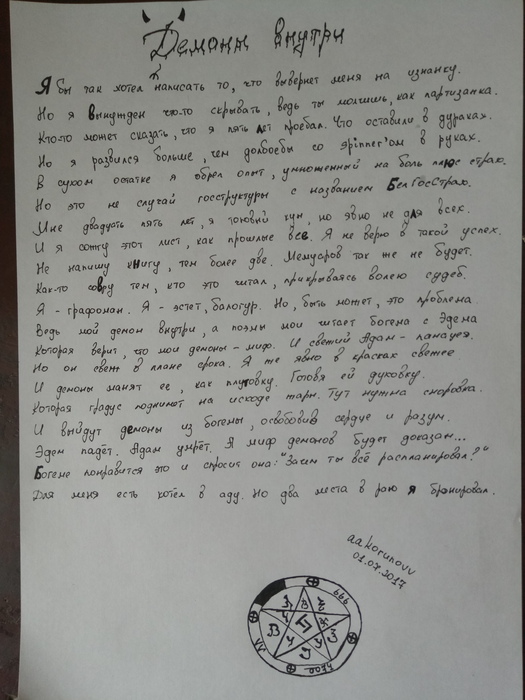 Демоны внутри
Я бы так хотел написать то, что вывернет меня на изнанку.
Но я вынужден что-то скрывать, ведь ты молчишь, как партизанка.
Кто-то может сказать, что я пять лет проебал. Что оставили в дураках.
Но я развился больше, чем долбоебы со spinner'ом в руках.
В сухом остатке я обрел опыт, умноженный на боль плюс страх.
Но это не случай госструктуры с названием БелГосСтрах.
Мне двадцать пять лет, я тоювый кун, но явно не для всех.
И я сотку этот лист, как прошлые все. Я не верю в такой успех.
Не напишу книгу, тем более две. Мемуаров так же не будет.
Как-то совру тем, кто это читал, прикрываясь волею судеб.
Я - графоман. Я - эстет, балогур. Но, быть может, это проблема
Ведь мой демон внутри, а поэмы мои читает богема с Эдема
Которая верит, что мои демоны - миф. И светий Адам - панацея.
Но он свет в плане срока. Я же явно в красках светее
И демоны манят ее, как плутовку. Готовя ей духовку.
Которая градус поднимет на исходе тарн. Тут нужна сноровка.
И выйдут демоны из богемы, освободив сердце и разум.
Эдем падёт. Адам умрёт. А миф демонов будет доказан...
Богеме понравится это и спросит она: "Зачем ты всё распланировал?"
Для меня есть котёл в аду. Но два места в раю я бронировал.
aakorunovv
01.07.2017
666